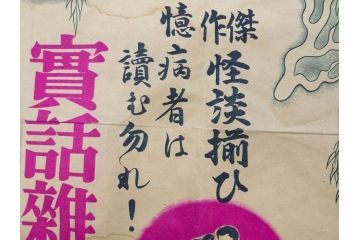 傑作怪談揃ひ
憶病者は
讀む勿れ！
實話雜